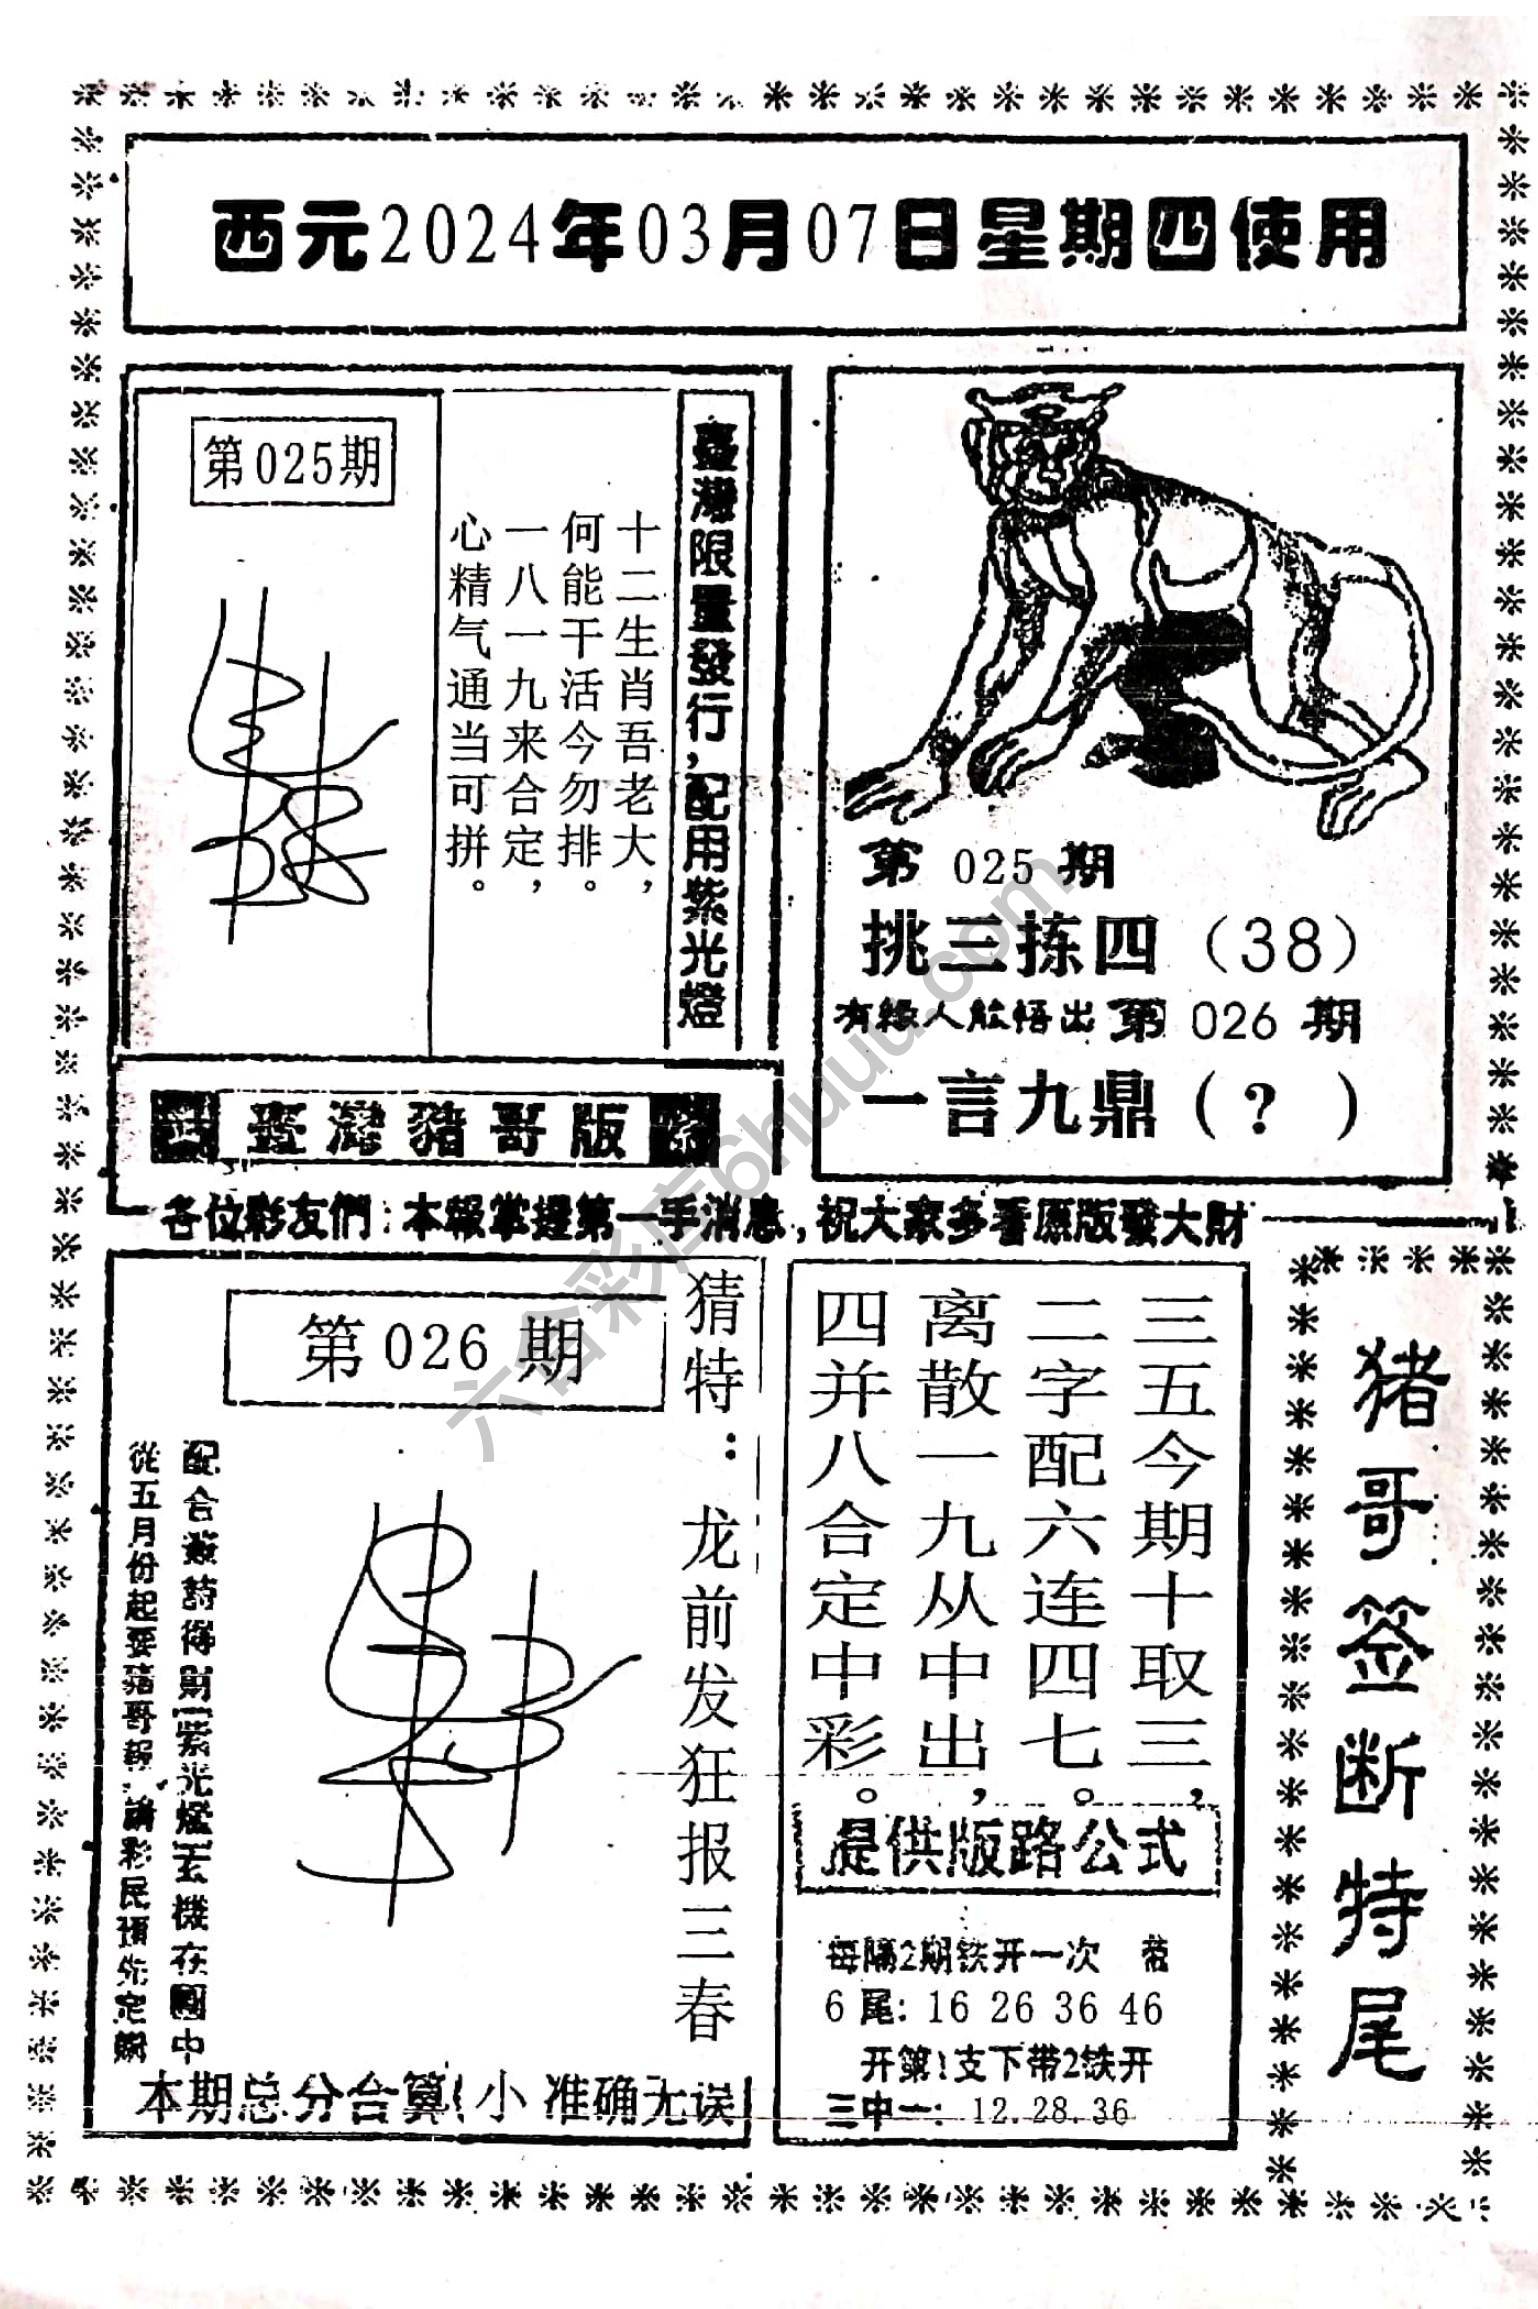 西元2024年03月07日星期四使用
第025期
臺灣限量發行,配用紫光燈
十二生肖吾老大，
何能干活今勿排。
一八一九来合定，
心精气通当可拼。
第 025 期
挑三拣四（38）
有緣人能悟出 第 026 期
一言九鼎（？）
臺灣豬哥版
各位彩友們:本報掌握第一手消息,祝大家多看原版發大財
第 026 期
猜特：龙前发狂报三春
從五月份起要豬哥報 請彩民預先定購
本期总分合算小 准确无误
三五今期十取三，
二字配六连四七。
离散一九从中出，
四并八合定中彩。
提供版路公式
每隔2期铁开一次
6 尾: 16 26 36 46
开第1支下带2铁开
三中一: 12.28.36
猪哥签断特尾
六合彩库6huuu.com